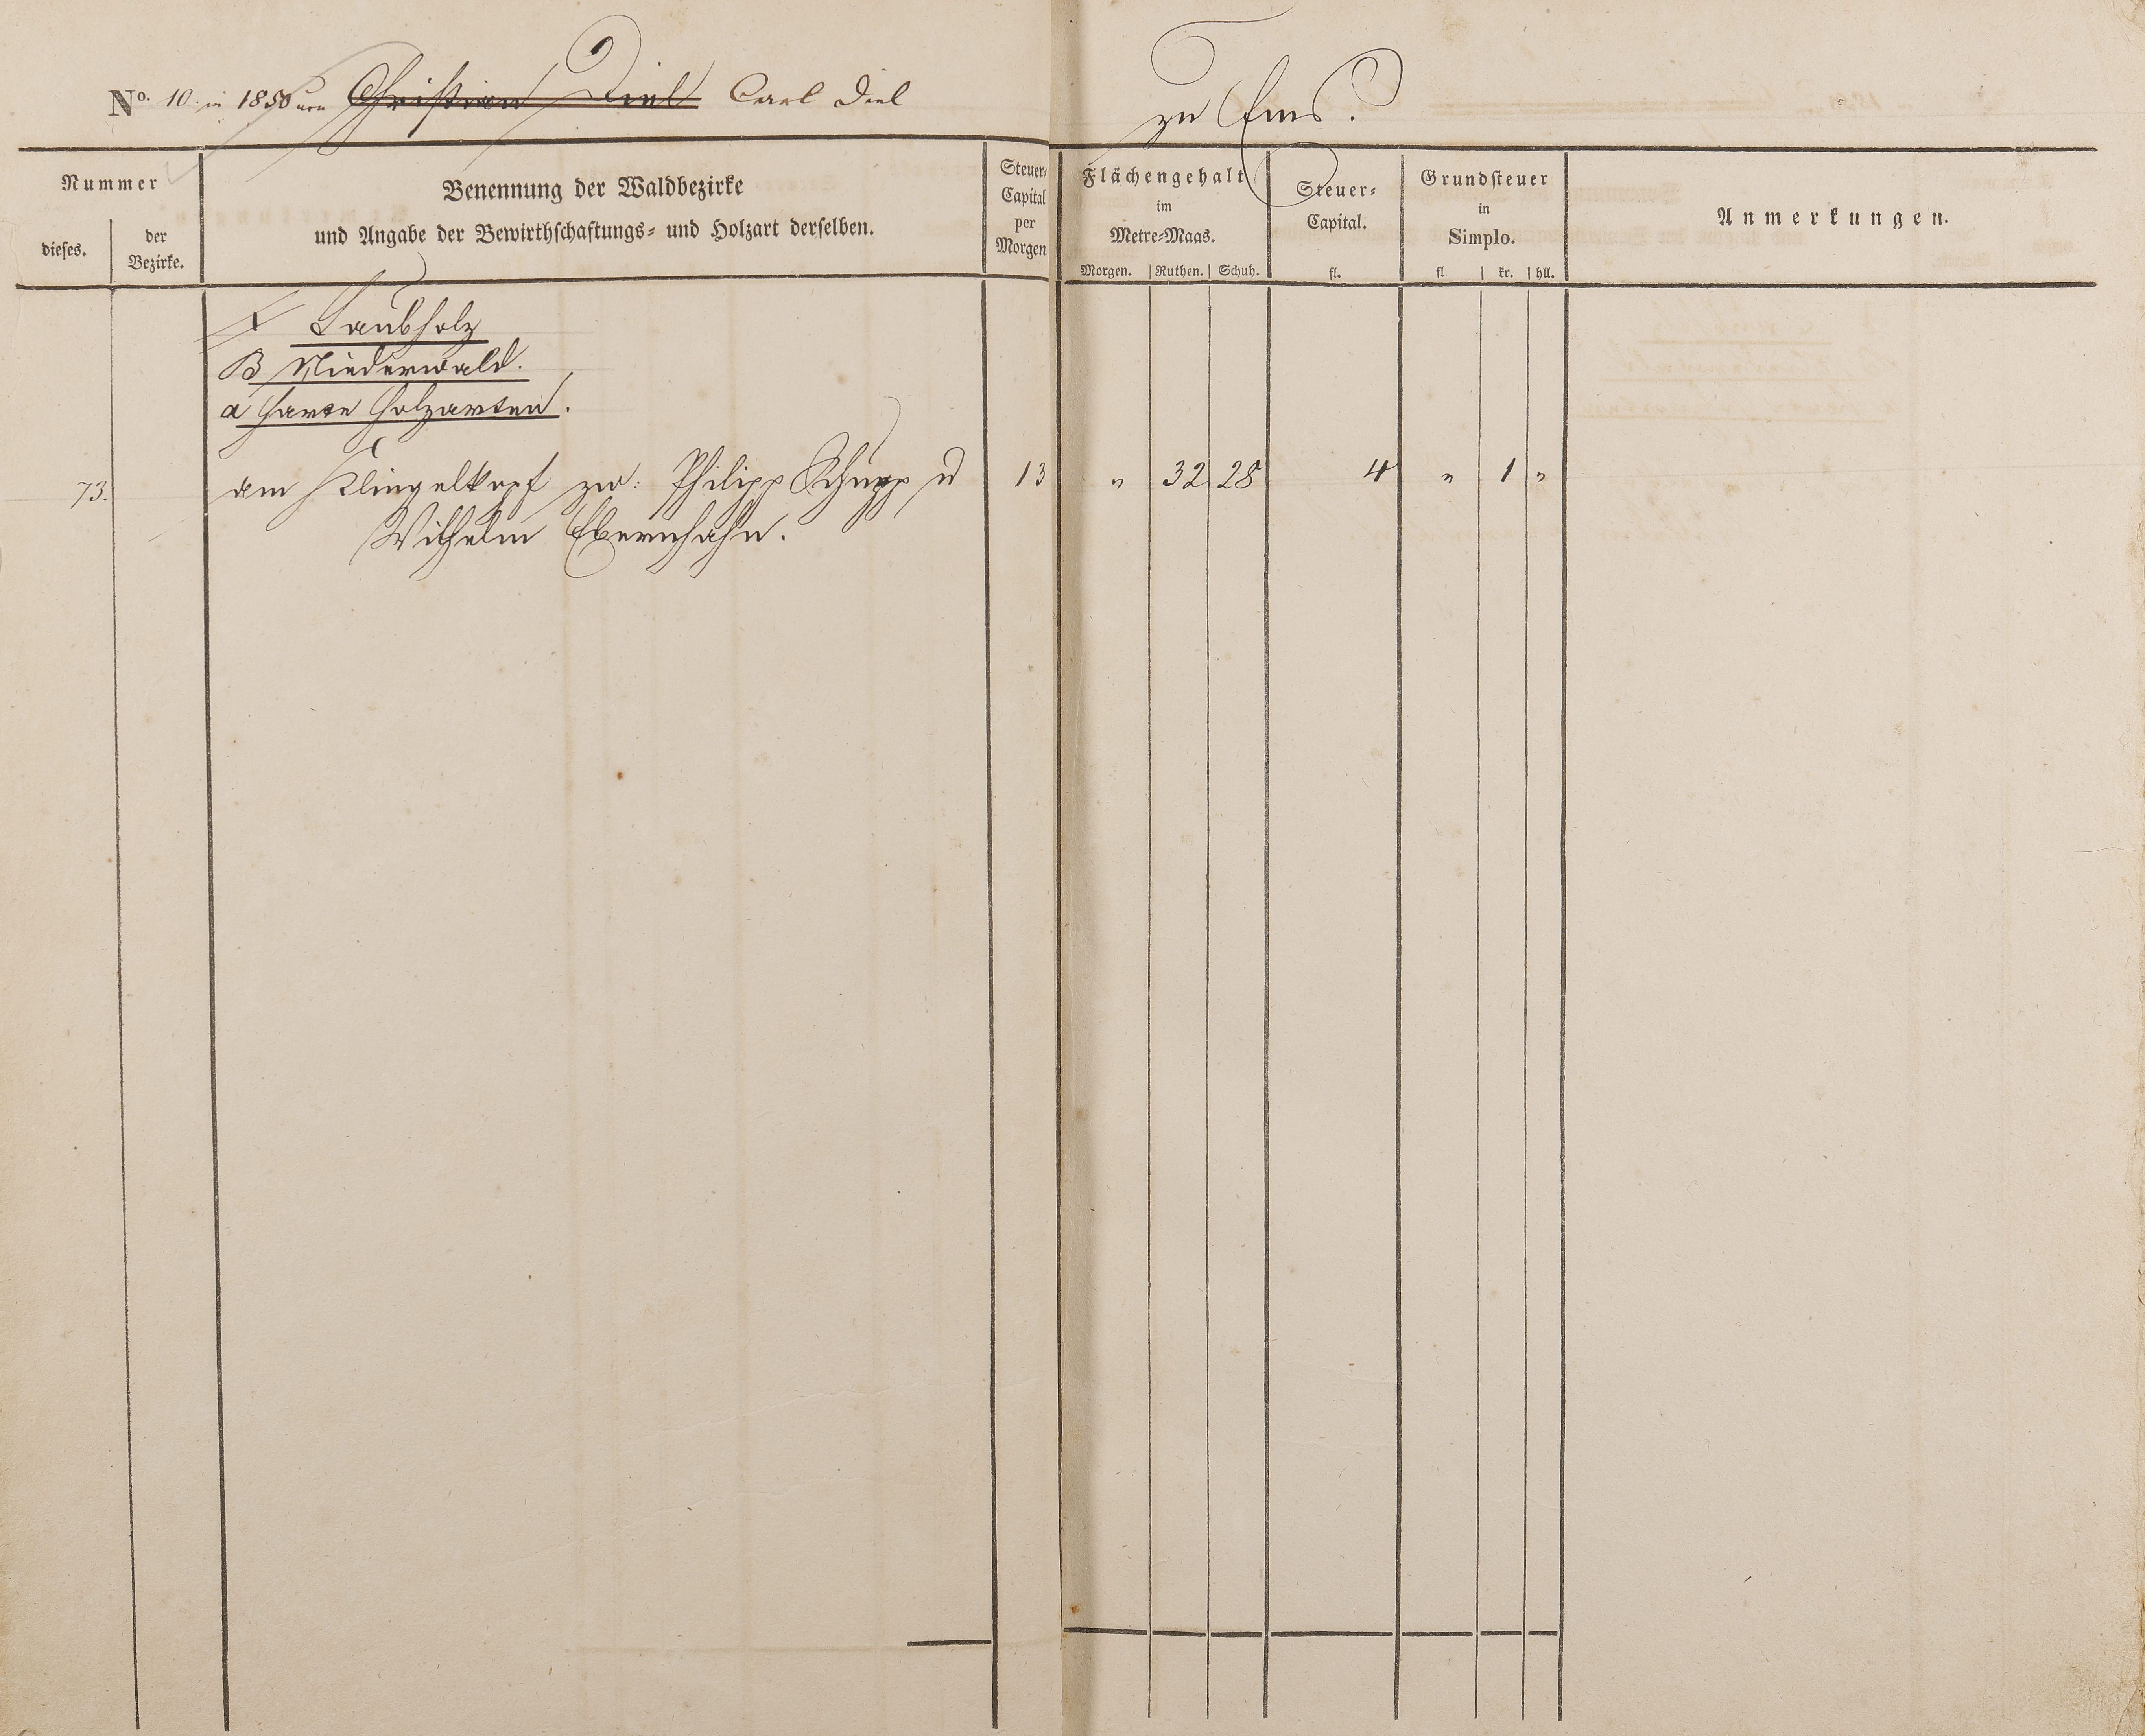 No. 10. in 1850 von Christian Diel Carl Diel zu Ems.
Nummer
dieses.
der
Bezirke.
Benennung der Waldbezirke
und Angabe der Bewirthschaftungs- und Holzart derselben.
Steuer-
Capital
per
Morgen
Flächengehalt
im
Metre-Maas.
Morgen. Ruthen. Schuh.
Steuer-
Capital.
fl.
Grundsteuer
in
Simplo.
fl kr. hll.
Anmerkungen.
Laubholz
B Niederwald.
a harte Holzarten.
73. am Klingelkopf zw: Philipp Schupp u 13 " 32 28 4 " 1 "
Wilhelm Ebernhahn.